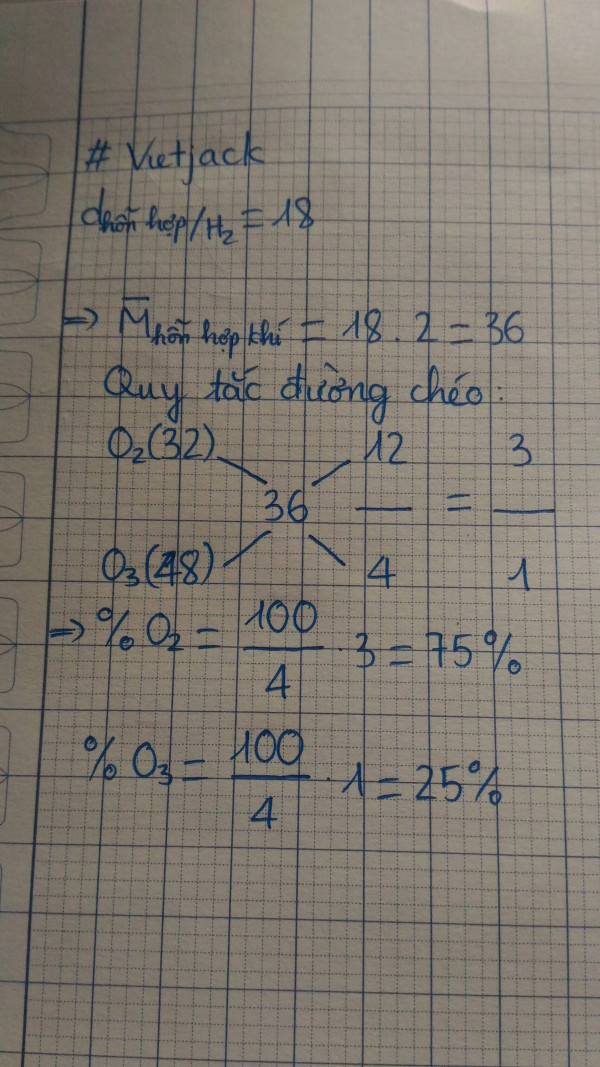 # Vietjack
dhỗn hợp/H₂ = 18
=> M̅hỗn hợp khí = 18 . 2 = 36
Quy tắc đường chéo:
O₂(32) 12 3
36 — = —
O₃(48) 4 1
=> % O₂ = 100/4 . 3 = 75%
% O₃ = 100/4 . 1 = 25%